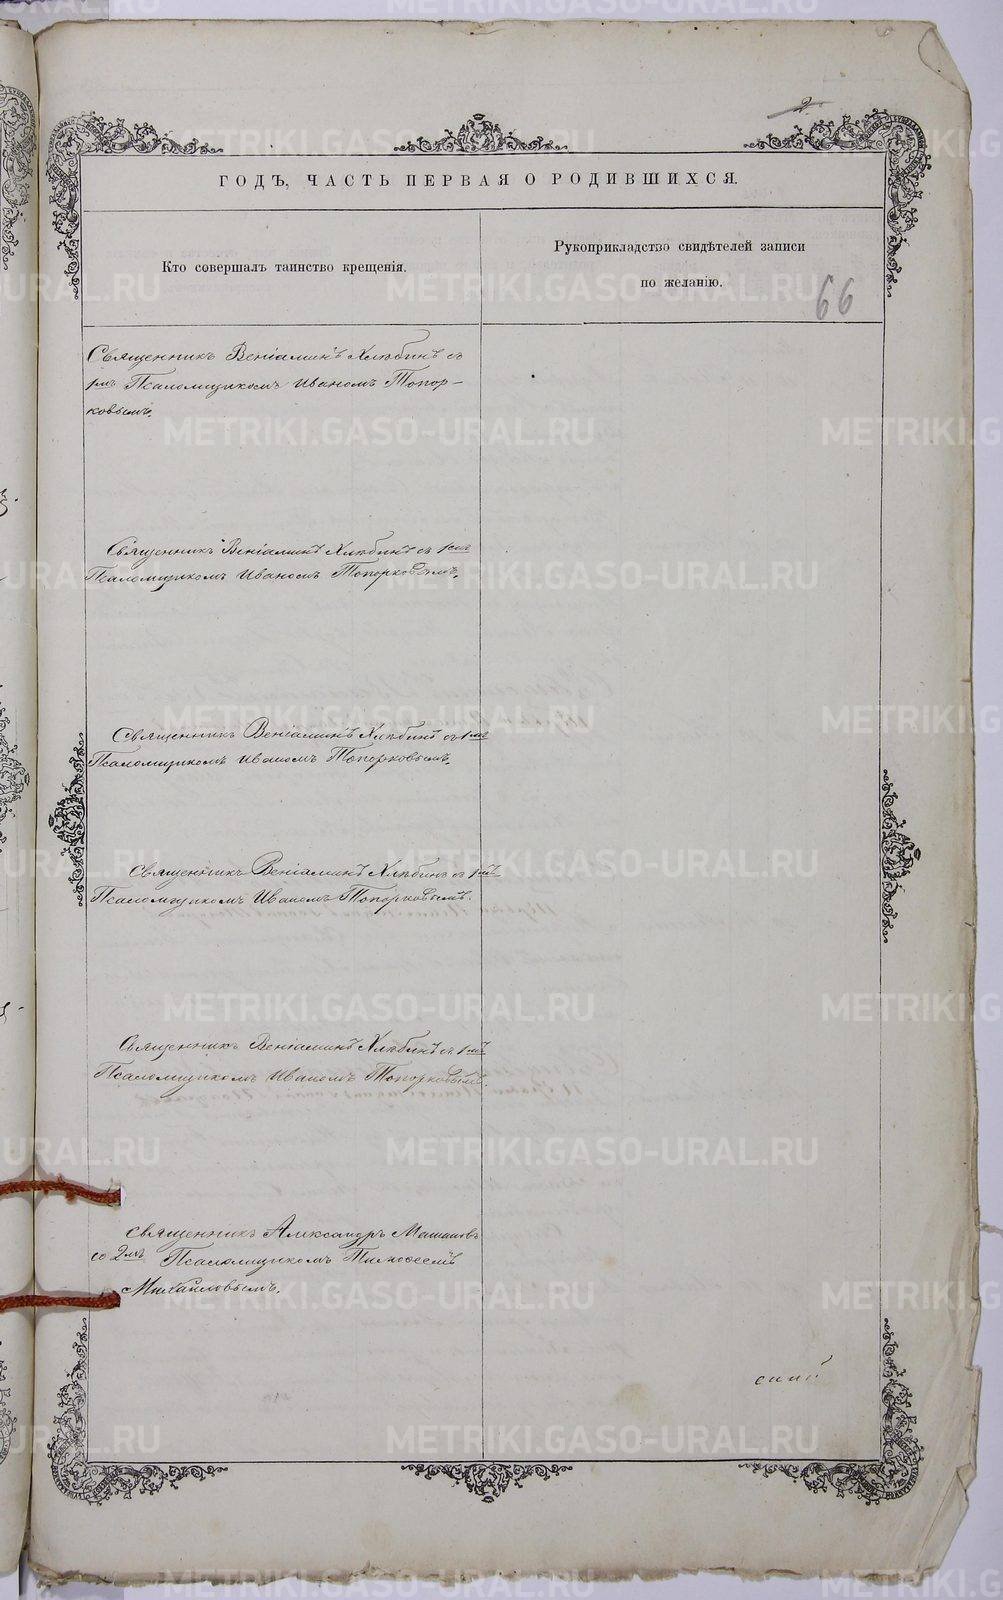 2.
ГОДЪ, ЧАСТЬ ПЕРВАЯ О РОДИВШИХСЯ.
Кто совершалъ таинство крещенія.
Рукоприкладство свидѣтелей записи
по желанію.
66
Священникъ Веніаминъ Хлѣбинъ съ
1мъ Псаломщикомъ Иваномъ Топор-
ковымъ.
Священникъ Веніаминъ Хлѣбинъ съ 1мъ
Псаломщикомъ Иваномъ Топорковымъ.
Священникъ Веніаминъ Хлѣбинъ съ 1мъ
Псаломщикомъ Иваномъ Топорковымъ.
Священникъ Веніаминъ Хлѣбинъ съ 1мъ
Псаломщикомъ Иваномъ Топорковымъ.
Священникъ Веніаминъ Хлѣбинъ съ 1мъ
Псаломщикомъ Иваномъ Топорковымъ.
Священникъ Александръ
со 2мъ Псаломщикомъ Тимофеемъ
Михайловымъ.
METRIKI.GASO-URAL.RU